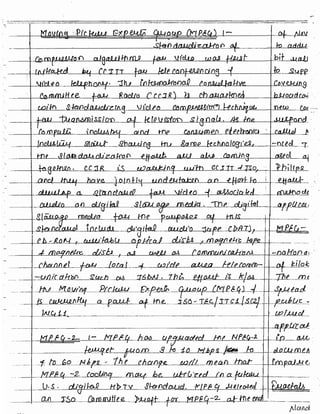 Moving Picture Experts Group (MPEG) :-
Standardization of
compression algorithms for video was first
initiated by CCITT for teleconferencing &
video telephony. The International Consultative
Committee for Radio (CCIR) is
with standardizing video compression techniques
for transmission of television signals. As the
computer industry and the consumer electronics
industry start sharing the same technologies,
the standardization efforts are also coming
together. CCIR is working with CCITT & ISO,
and they have jointly undertaken an effort to
develop a standard for video & associated
audio on digital storage media. The digital
storage media for the purposes of this
standard include digital audio tape (DAT),
CD-ROM, writable optical disks, magnetic tape
& magnetic disks, as well as communications
channel for local & wide area telecomm-
-unication such as ISDN. This effort is k/as
the Moving Picture Experts Group (MPEG) &
is currently a part of the ISO-IEC/JTC1/SC2/
WG11.
MPEG-2 :- MPEG has upgraded the MPEG-2
target from 3 to 10 Mbps to
to 60 Mbps. The change will mean that
MPEG-2 coding may be utilized in a future
U.S. digital HDTV standard. MPEG
an ISO Committee Draft for MPEG-2 at the end
of Nov
to addre
bit
to supp
covering
broadcas
new
respond
called
-need
ated
Phillips
effort
methods
applica
MPEG-
-nationa
of
The
spread
public
applicat
in
documen